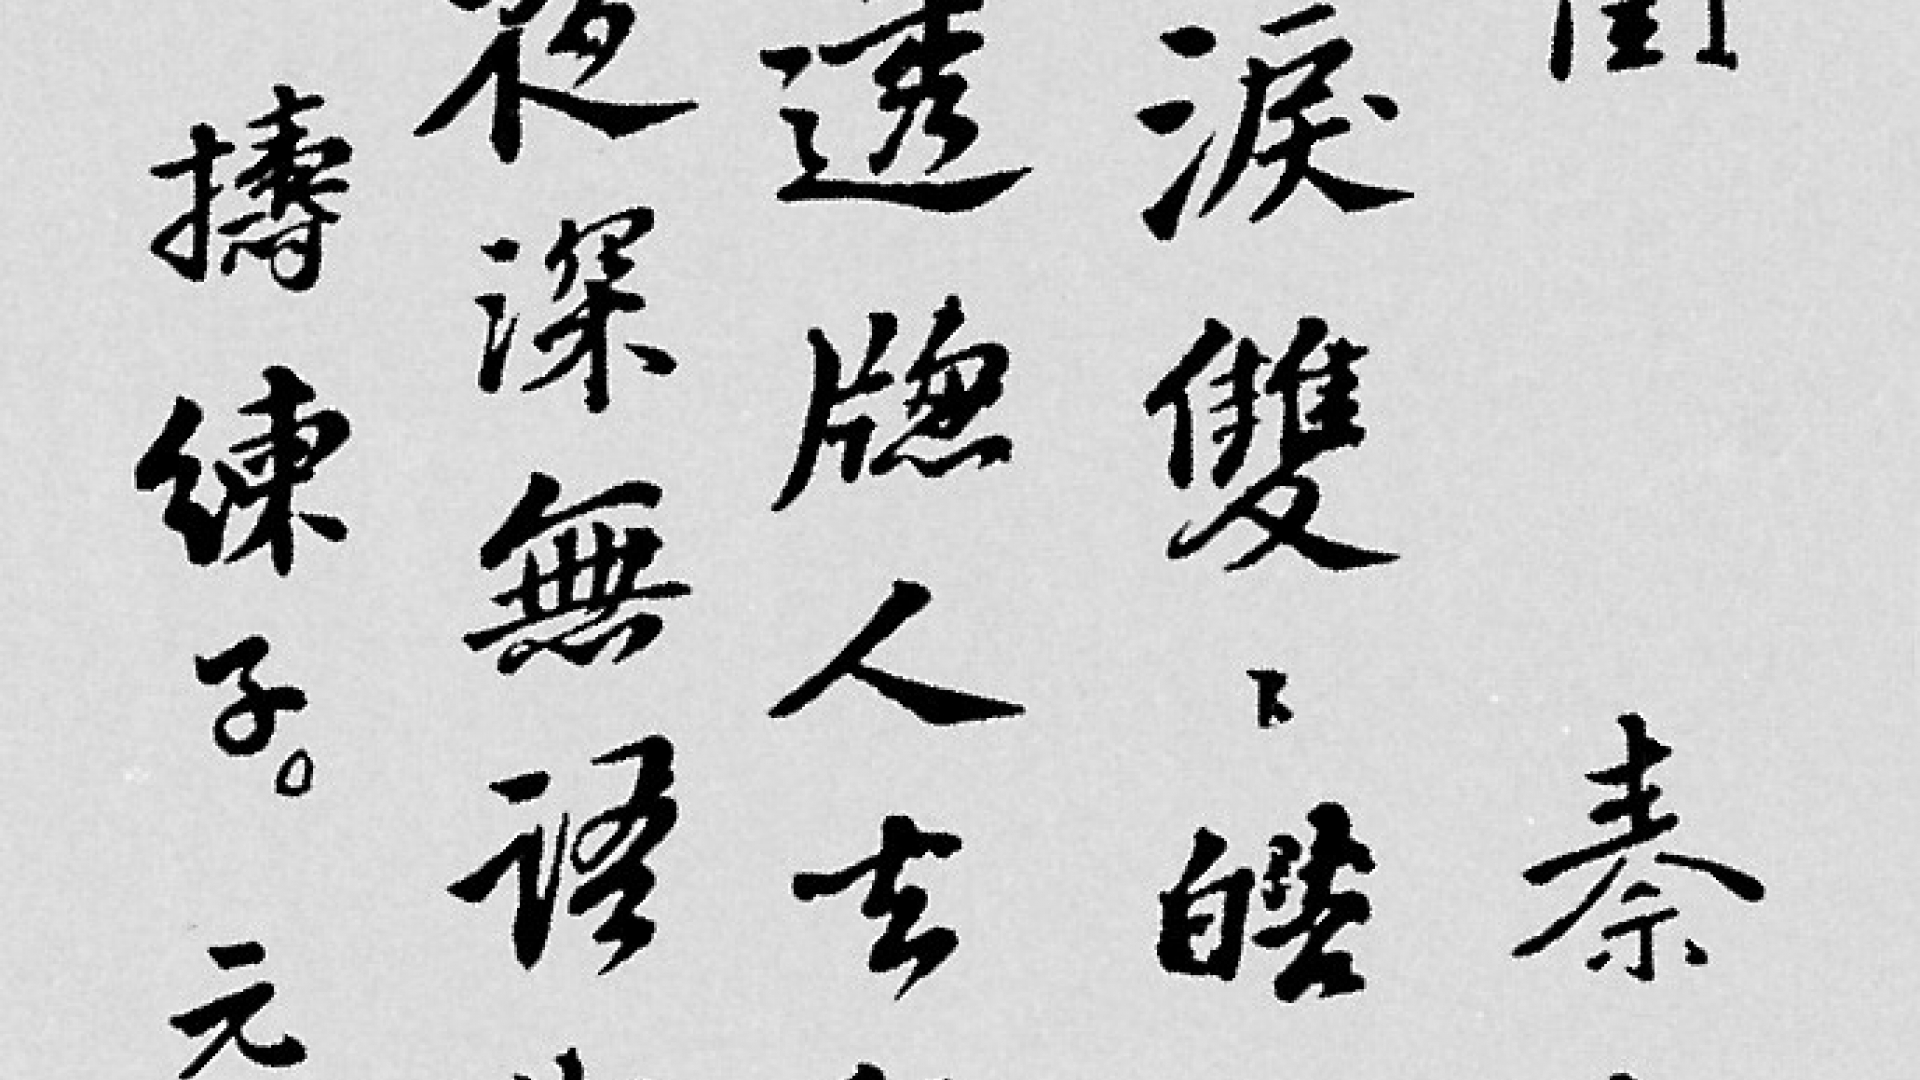 閨 秦
淚雙〻皓
透牕人去
夜深無語
擣練子。元